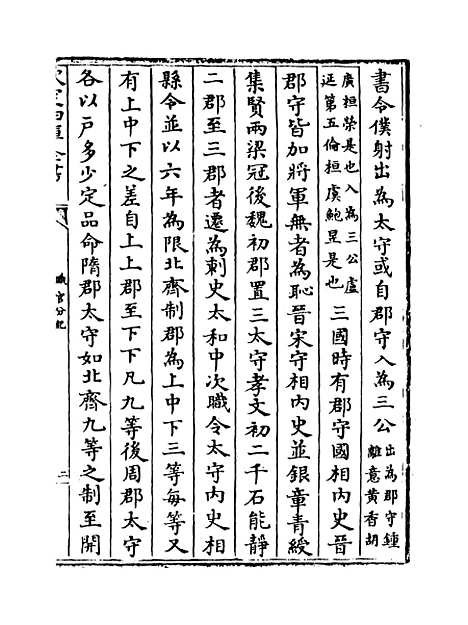 書令僕射出為太守或自郡守入為三公出為郡守鍾離意黄香胡
廣桓榮是也入為三公虞延第五倫桓虞鮑昱是也三國時有郡守國相内史晉
郡守皆加將軍無者為恥晉宋守相内史並銀章青綬
集賢兩梁冠後魏初郡置三太守孝文初二千石能靜
二郡至三郡者遷為刺史太和中次職令太守内史相
縣令並以六年為限北齊制郡為上中下三等每等又
有上中下之差自上上郡至下下凡九等後周郡太守
各以戸多少定品命隋郡太守如北齊九等之制至開
欽定四庫全書
職官分紀